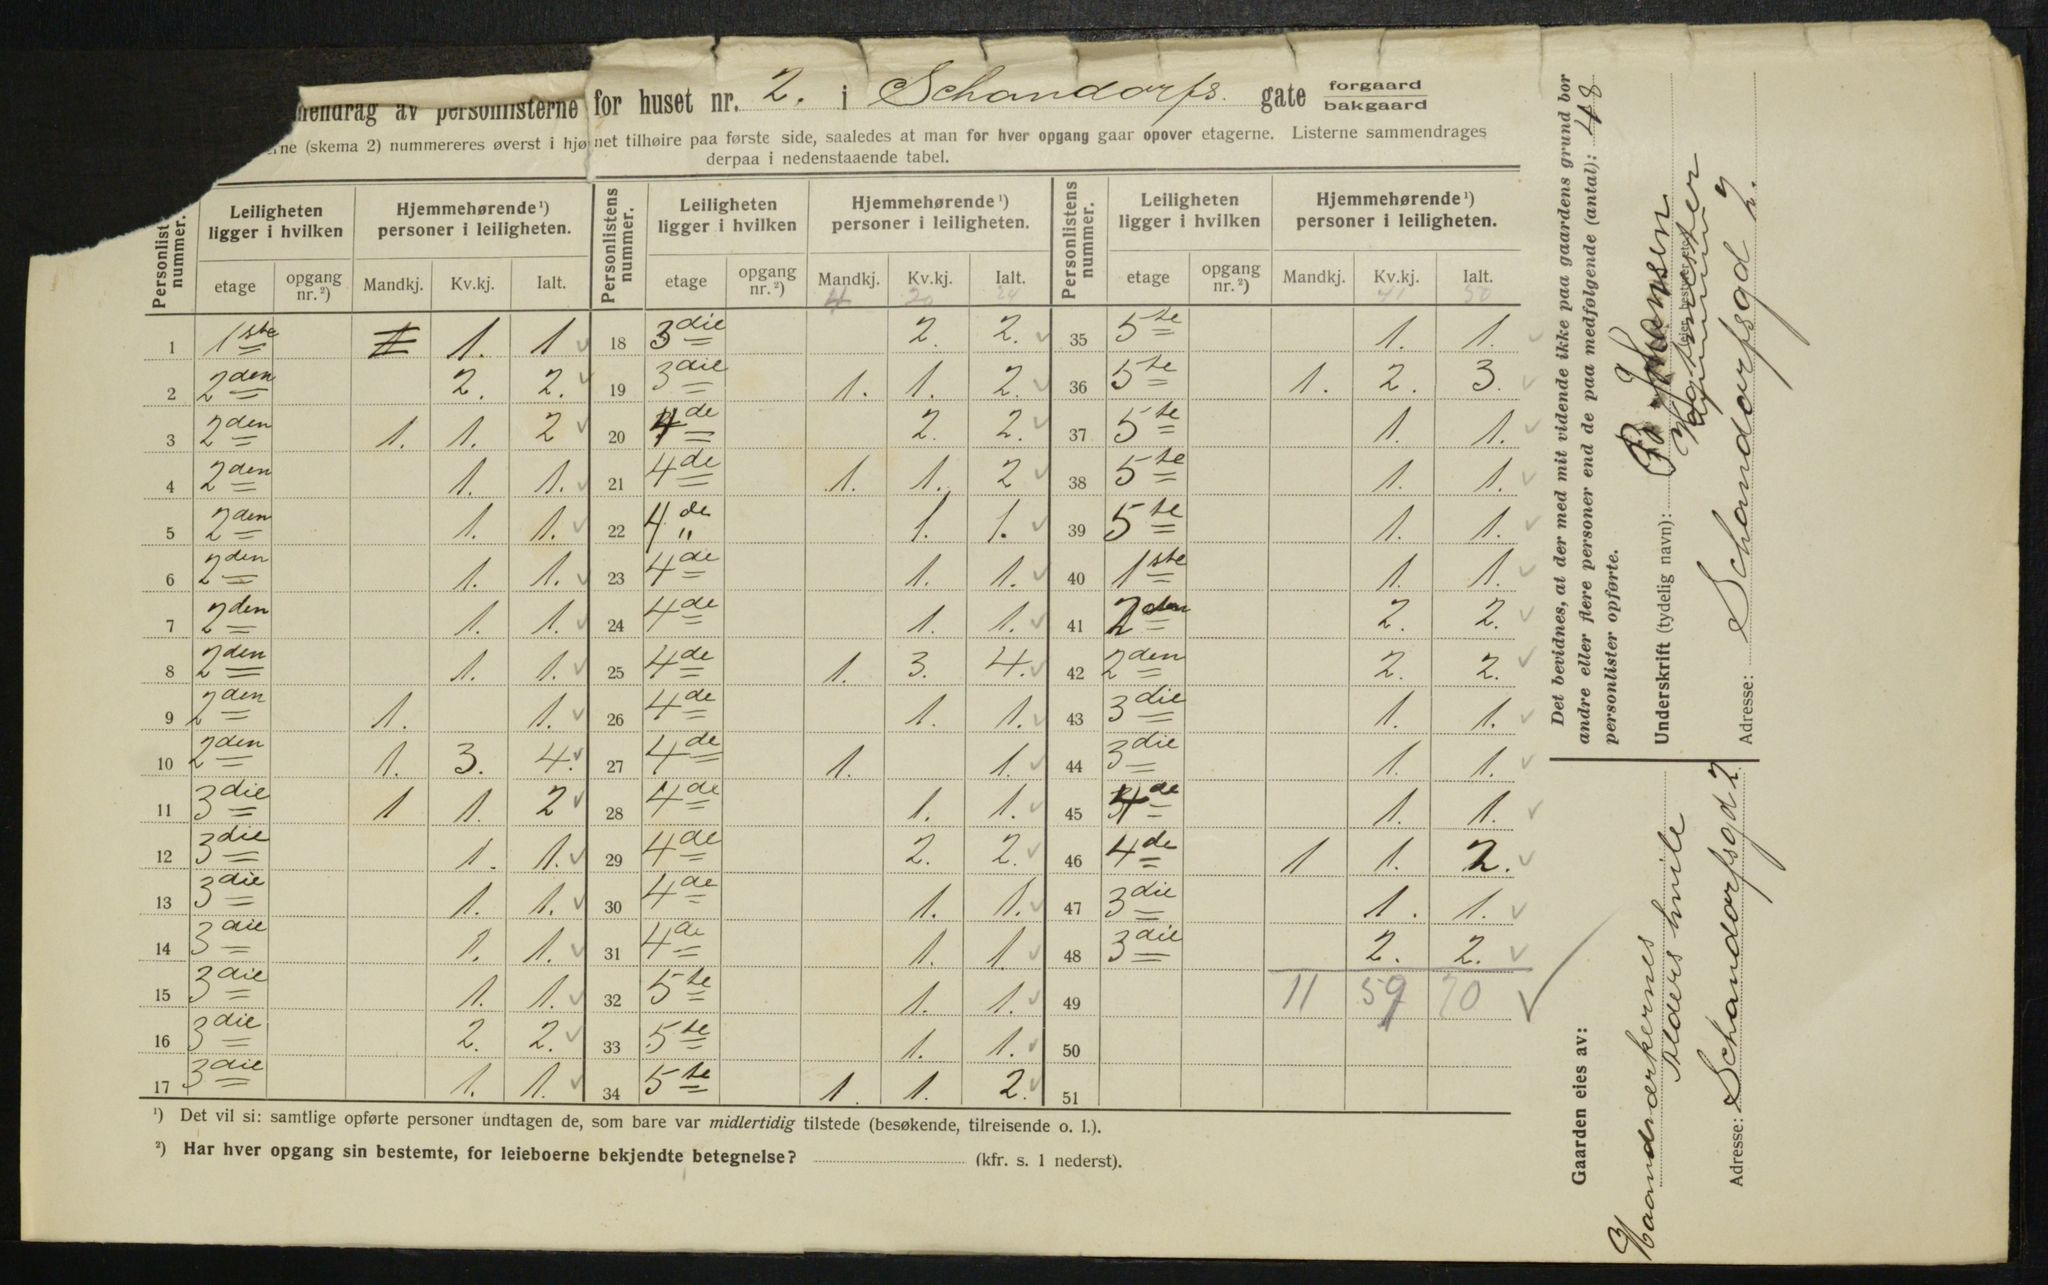 mendrag av personlisterne for huset nr. 2. i Schandorfs. gate forgaard
bakgaard
erne (skema 2) nummereres øverst i hjørnet tilhøire paa første side, saaledes at man for hver opgang gaar opover etagerne. Listerne sammendrages
derpaa i nedenstaaende tabel.
Personlistens nummer. Leiligheten ligger i hvilken Hjemmehørende¹) personer i leiligheten. Personlistens nummer. Leiligheten ligger i hvilken Hjemmehørende¹) personer i leiligheten. Personlistens nummer. Leiligheten ligger i hvilken Hjemmehørende¹) personer i leiligheten.
etage opgang nr.²) Mandkj. Kv.kj. Ialt. etage opgang nr.²) Mandkj. Kv.kj. Ialt. etage opgang nr.²) Mandkj. Kv.kj. Ialt.
4 20 24 41 50
1 1ste 1 1. 1 18 3die 2. 2. 35 5te 1. 1.
2 2den 2. 2. 19 3die 1. 1. 2. 36 5te 1. 2. 3.
3 2den 1. 1. 2 20 4de 2. 2. 37 5te 1. 1.
4 2den 1. 1. 21 4de 1. 1. 2 38 5te 1. 1.
5 2den 1. 1. 22 4de 1. 1. 39 5te 1. 1.
6 2den 1. 1. 23 4de 1. 1. 40 1ste 1. 1.
7 2den 1. 1. 24 4de 1. 1. 41 2den 2. 2.
8 2den 1. 1. 25 4de 1. 3. 4. 42 2den 2. 2.
9 2den 1. 1. 26 4de 1. 1. 43 3die 1. 1.
10 2den 1. 3. 4. 27 4de 1. 1. 44 3die 1. 1.
11 3die 1 1. 2 28 4de 1. 1. 45 4de 1. 1.
12 3die 1. 1. 29 4de 2. 2. 46 4de 1 1. 2.
13 3die 1. 1. 30 4de 1. 1. 47 3die 1. 1.
14 3die 1. 1. 31 4de 1. 1. 48 3die 2. 2.
15 3die 1. 1. 32 5te 1. 1. 49 11 59 70
16 3die 2. 2. 33 5te 1. 1. 50
17 3die 1. 1. 34 5te 1. 1. 2. 51
¹) Det vil si: samtlige opførte personer undtagen de, som bare var midlertidig tilstede (besøkende, tilreisende o. l.).
²) Har hver opgang sin bestemte, for leieboerne bekjendte betegnelse? (kfr. s. 1 nederst).
Det bevidnes, at der med mit vidende ikke paa gaardens grund bor
andre eller flere personer end de paa medfølgende (antal): 48
personlister opførte.
Underskrift (tydelig navn):
Adresse: Schandorfsgd 2.
Gaarden eies av:
Haandværkernes
Alders hvile
Adresse: Schandorfsgd 2.